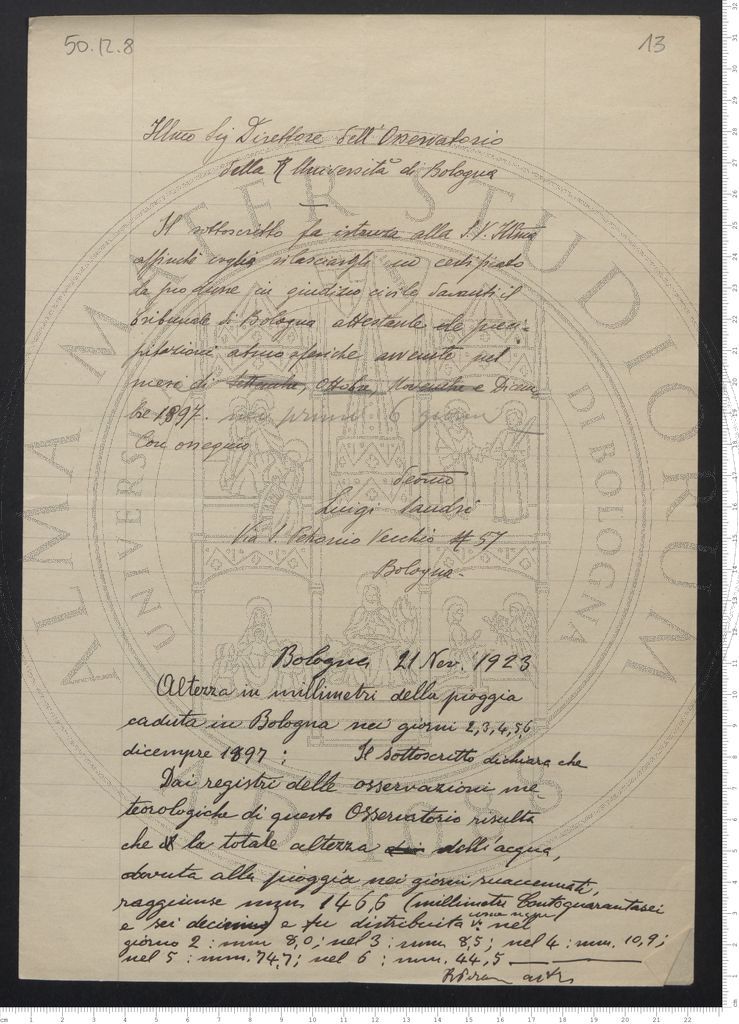 50.12.8
13
Illmo Sig Direttore dell'Osservatorio
della R Università di Bologna
Il sottoscritto fa istanza alla S.V. Illma
affinché voglia rilasciargli un certificato
da produrre in giudizio civile davanti il
Tribunale di Bologna attestante le preci-
pitazioni atmosferiche avvenute nel
mese di Settembre, Ottobre, Novembre e Dicem
bre 1897. nei primi 6 giorni
Con ossequio
Luigi
Via S. Petronio Vecchio # 57
Bologna-
Bologna 21 Nov. 1923
Altezza in millimetri della pioggia
caduta in Bologna nei giorni 2,3,4,5,6
dicembre 1897 ; Il sottoscritto dichiara che
Dai registri delle osservazioni me
teorologiche di questo Osservatorio risulta
che la totale altezza dell'acqua,
dovuta alla pioggia nei giorni suaccennati,
raggiunse mm 146,6 (millimetri Centoquarantasei
e sei decimi) e fu distribuita nel
giorno 2 : mm 8,0; nel 3 : mm. 8,5; nel 4 : mm. 10,9;
nel 5 : mm. 74,7; nel 6 : mm. 44,5
ALMA MATER STUDIORUM
UNIVERSITÀ DI BOLOGNA
A.D. 1088